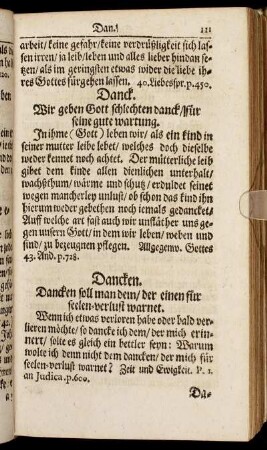 Dan. 111
arbeit/ keine gefahr/ keine verdrüßligkeit sich las-
sen irren/ ja leib/ leben und alles lieber hindan se-
tzen/ als im geringsten etwas wider die liebe ih-
res Gottes fürgehen lassen. 40. Liebesspr. p. 450.
Danck.
Wir geben Gott schlechten danck/ für
seine gute wartung.
In ihme (Gott) leben wir/ als ein kind in
seiner mutter leibe lebet/ welches doch dieselbe
weder kennet noch achtet. Der mütterliche leib
gibet dem kinde allen dienlichen unterhalt/
wachßthum/ wärme und schutz/ erduldet seinet
wegen mancherley unlust/ ob schon das kind ihn
hierum weder gebethen noch iemals gedancket/
Auff welche art fast auch wir unfläther uns ge-
gen unsern Gott/ in dem wir leben/ weben und
sind/ zu bezeugnen pflegen. Allgegenw. Gottes
43. And. p. 728.
Dancken.
Dancken soll man dem/ der einen für
seelen-verlust warnet.
Wenn ich etwas verloren habe oder bald ver-
lieren möchte/ so dancke ich dem/ der mich erin-
nert/ solte es gleich ein bettler seyn: Warum
wolte ich denn nicht dem dancken/ der mich für
seelen-verlust warnet? Zeit und Ewigkeit. P. 1.
an Judica. p. 600.
Da-